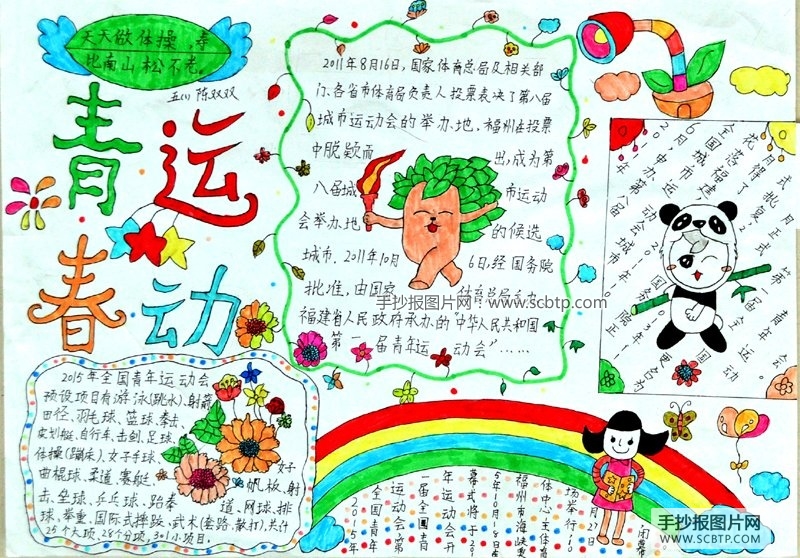 天天做体操，寿
比南山松不老。
五(1) 陈双双
青春
运动
2011年8月16日，国家体育总局及相关部
门、各省市体育局负责人投票表决了第八届
城市运动会的举办地，福州在投票
中脱颖而出，成为第
八届城市运动
会举办地的候选
城市，2011年10月6日，经国务院
批准，由国家体育总局主办
福建省人民政府承办的"中华人民共和国
第一届青年运动会"……
2015年全国青年运动会
预设项目有游泳(跳水)、射箭
田径、羽毛球、篮球、拳击
皮划艇、自行车、击剑、足球、
体操(蹦床)、女子手球、
女子
曲棍球、柔道、赛艇、帆板、射
击、垒球、乒乓球、跆拳道、网球、排
球、举重、国际式摔跤、武术(套路、散打)，共计
25个大项，28个分项，301小项目。
2015年
全国青年
运动会第
一届全国青
年运动会开
幕式将于20
15年10月18日在
福州市海峡奥
体中心主体育
场举行，
月27日
闭幕
手抄报图片网：www.scbtp.com
手抄报图片网
WWW.SCBTP.COM